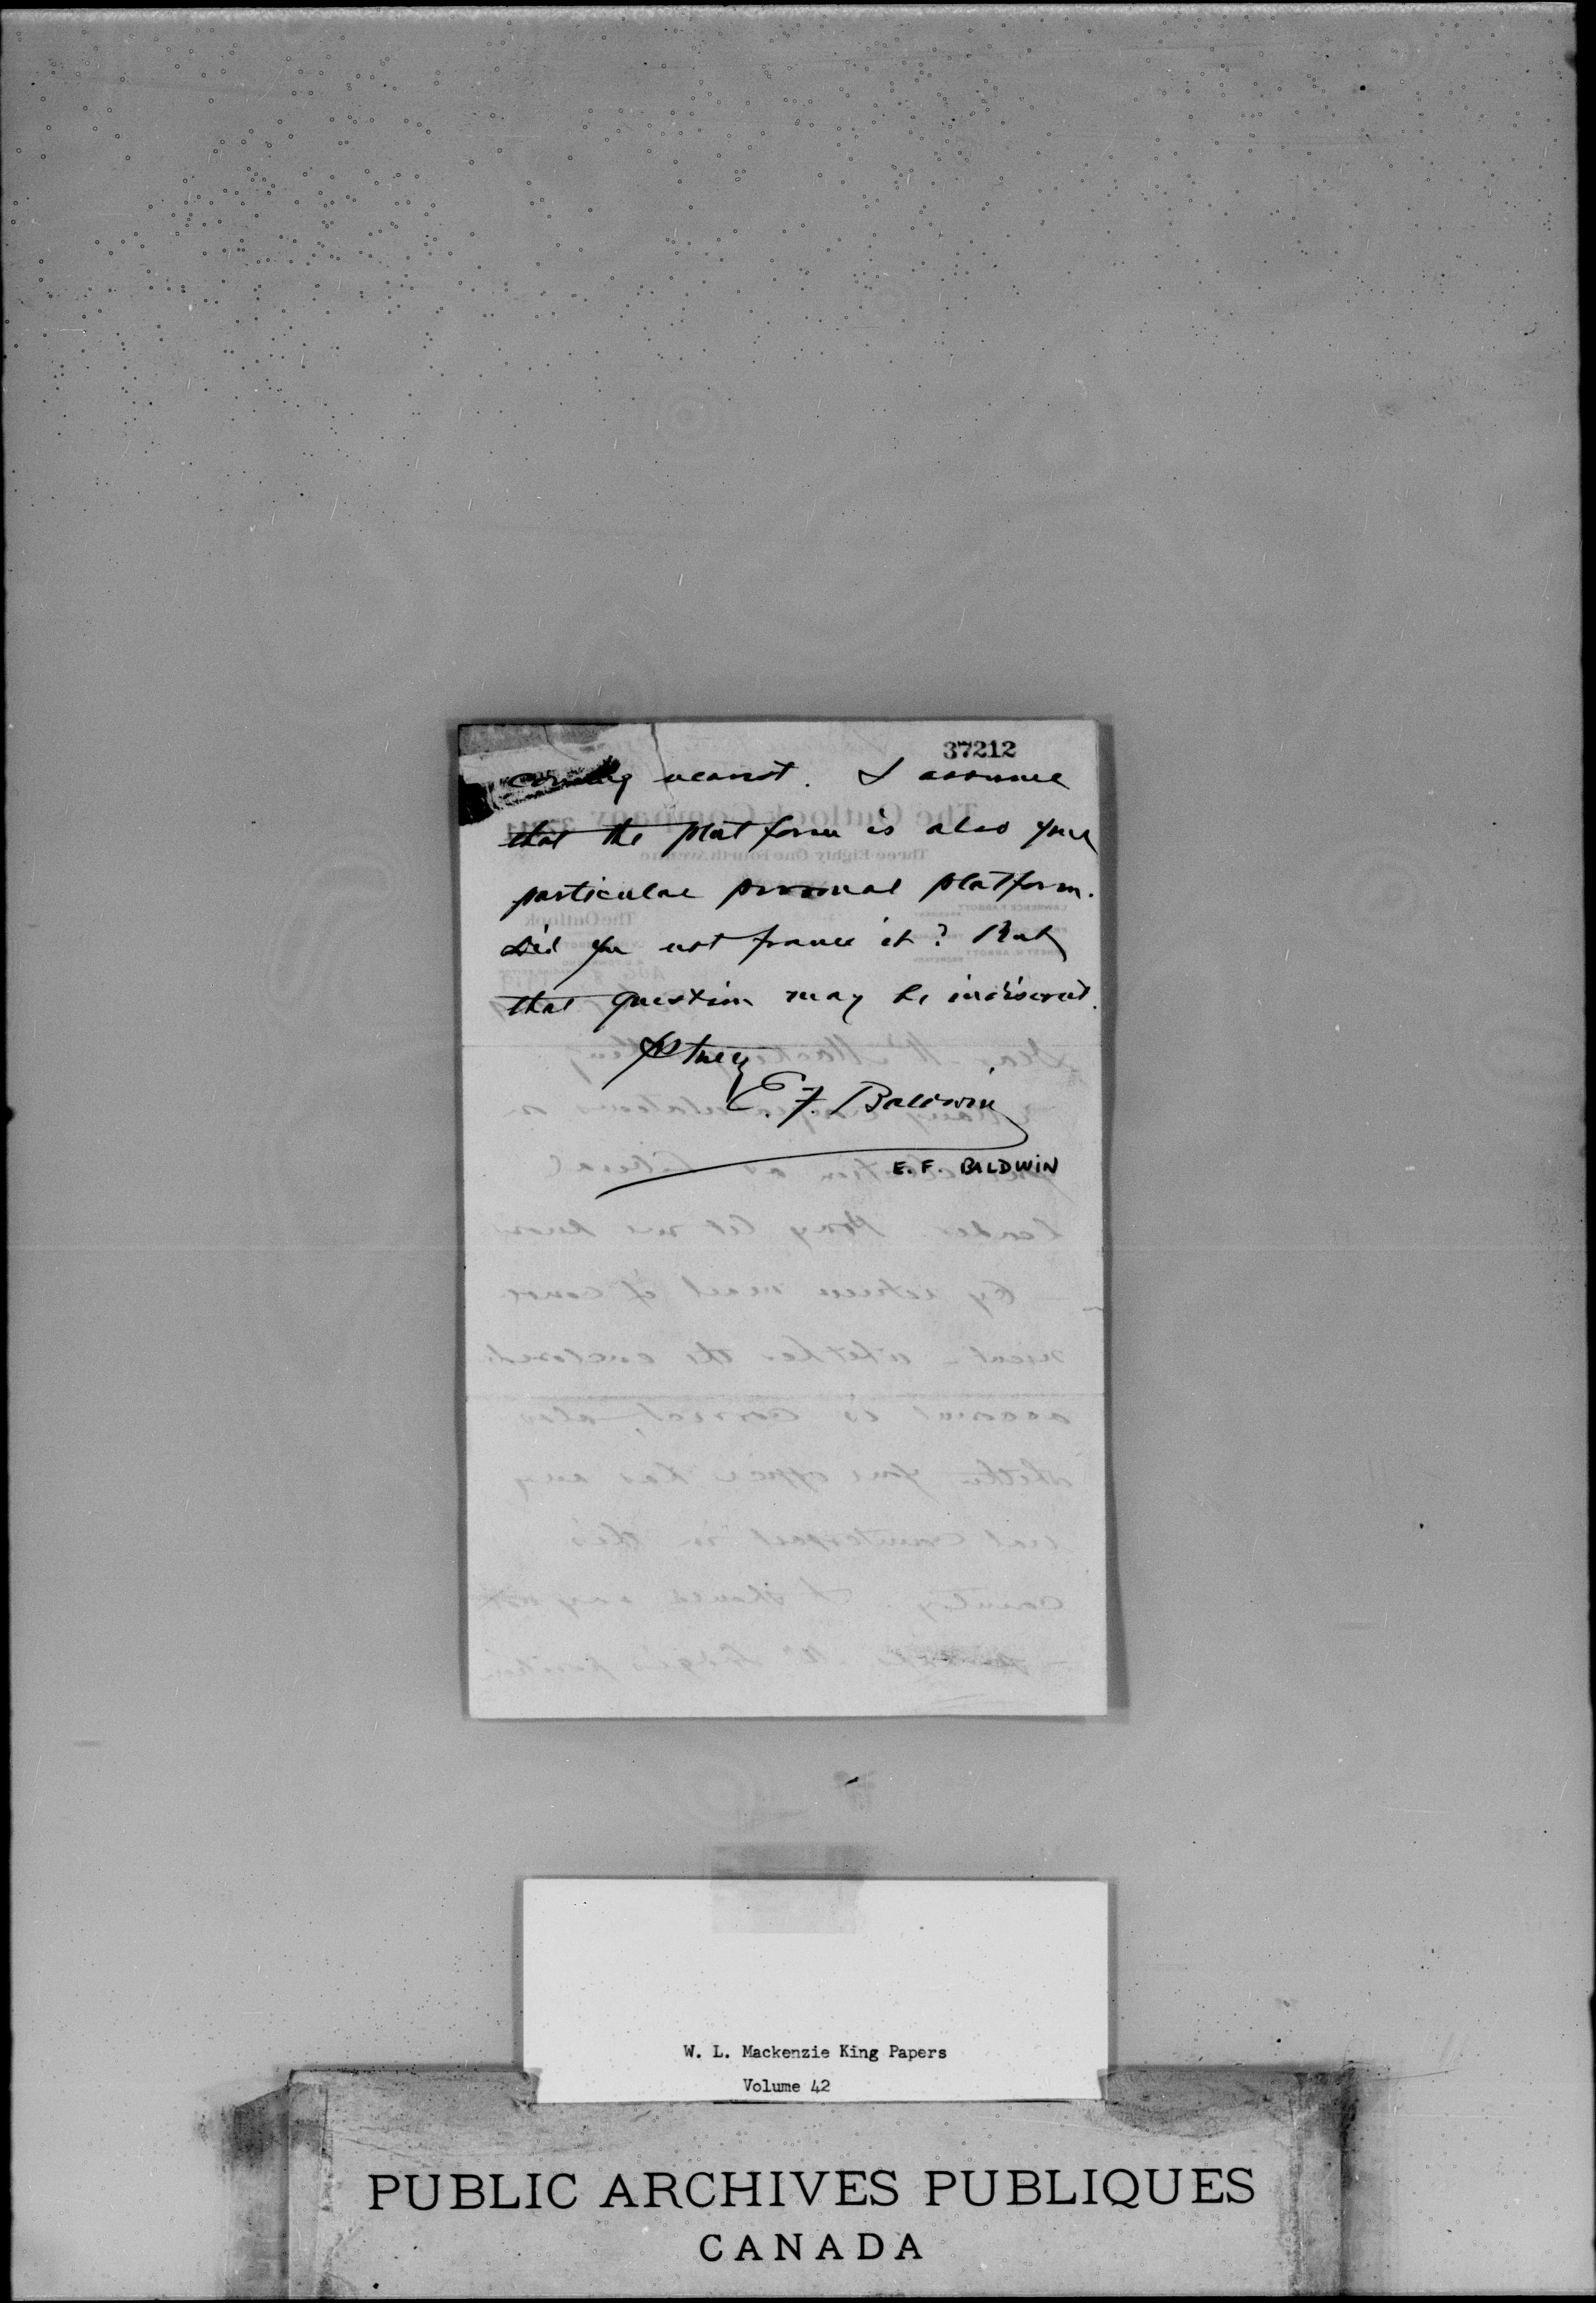 37212
coming nearest. I assume
that the platform is also your
particular personal platform.
Did you not frame it? But
that question may be indiscreet.
Yrs truly
E. F. Baldwin
E. F. BALDWIN
W. L. Mackenzie King Papers
Volume 42
PUBLIC ARCHIVES PUBLIQUES
CANADA